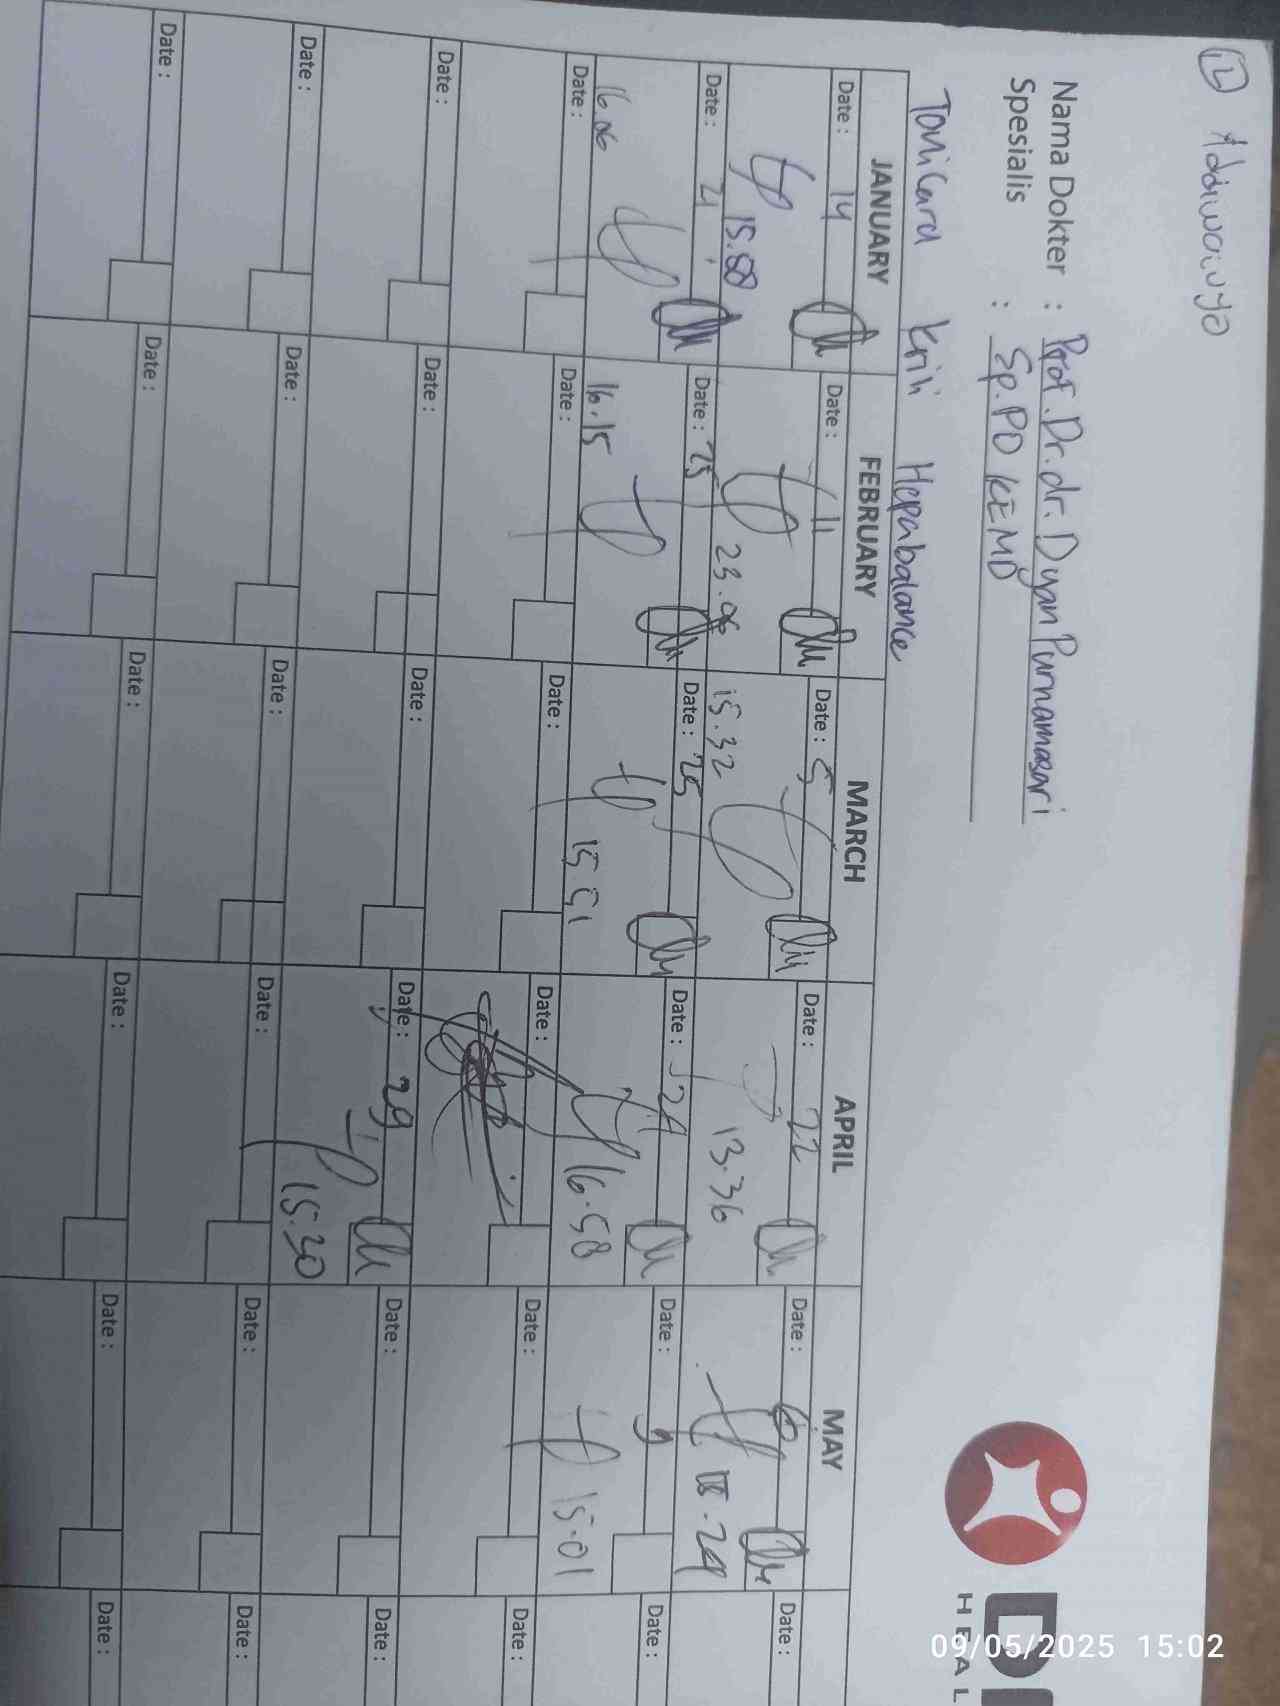 12 Adiwaluyo
Nama Dokter : Prof. Dr. dr. Dyan Purnamasari
Spesialis : Sp.PD KEMD
HEAL
Tonicard Krili Hepabalance
JANUARY FEBRUARY MARCH APRIL MAY
Date : 14 Date : 11 Date : 5 Date : 22 Date : 6 Date :
15.58 23.06 15.32 13.36 .29
Date : 21 Date : 25 Date : 25 Date : 24 Date : 9 Date :
16.06 16.15 15.51 16.58 15.01
Date : Date : Date : Date : Date : Date :
Date : Date : Date : Date : 29 Date : Date :
15.30
Date : Date : Date : Date : Date : Date :
Date : Date : Date : Date : Date : Date :
09/05/2025 15:02